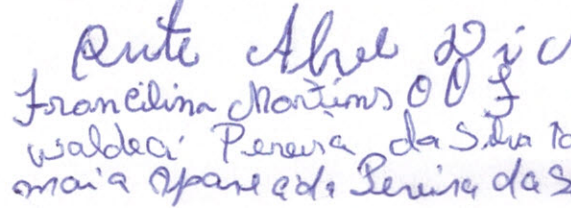 Rute Abre
Francilina Martins O O f
valdeci Pereira da Silva
maria Aparecida Pereira da S